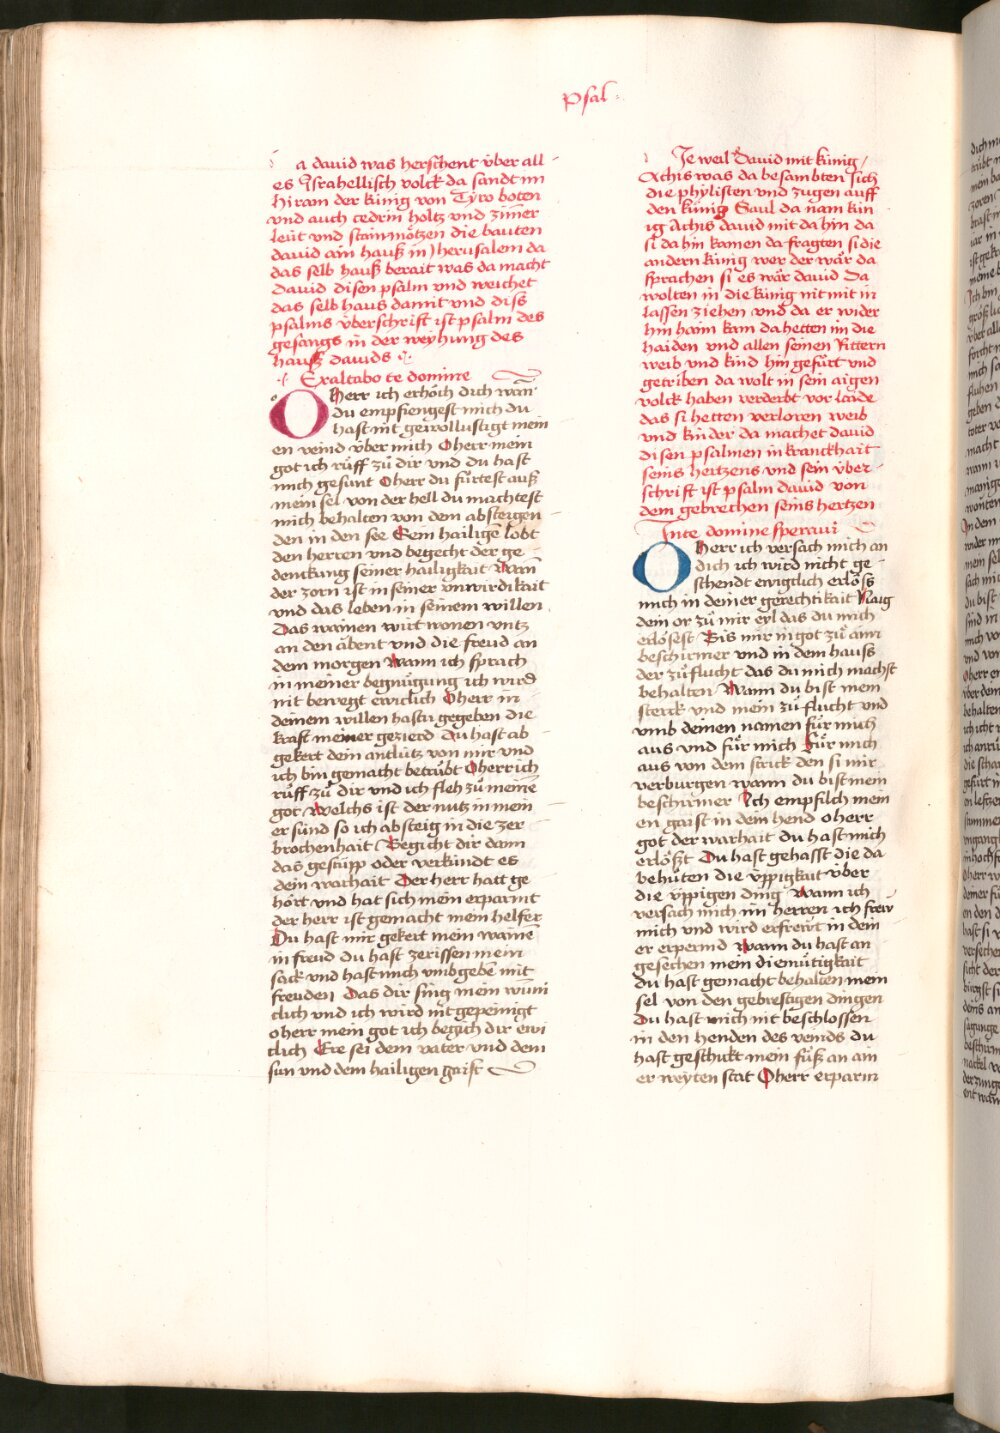 Psal
a dauid was herschent über all
es Israhellisch volck da sandt im
hiram der künig von Tyro boten
vnd auch cedrin holtz vnd zimer
leüt vnd stainmötzen die bauten
dauid ain hauß in Jherusalem da
das selb hauß berait was da macht
dauid disen psalm vnd weichet
das selb haus damit vnd diss
psalms überschrift ist psalm des
gesangs in der weyhung des
hauß dauids
Exaltabo te domine
O Herr ich erhöch dich wan̄
du empfiengest mich du
hast nit gewollustigt mein
en veind über mich Oherr mein
got ich rüff zů dir vnd du hast
mich gesunt Oherr du fürtest auß
mein sel von der hell du machtest
mich behalten von dem absteigen
den in den see Eem hailigē lobt
den herren vnd begecht der ge
denckung seiner hailigkait Wan̄
der zorn ist in seiner vnwirdikait
vnd das leben in seinem willen
Das wainen wirt wonen vntz
an den äbent vnd die freud an
dem morgen Wann ich sprach
in meiner begnügung ich wird
nit bewegt ewiclich Oherr in
deinem willen hastu gegeben die
kraft meiner gezierd Du hast ab
gekert dein antlütz von mir vnd
ich bin gemacht betrübt Oherr ich
rüff zů dir vnd ich fleh zů meinē
got Welchs ist der nutz in mein
er sünd so ich absteig in die zer
brochenhait Begicht dir dann
das gestüpp oder verkündt es
dein warhait Der herr hatt ge
hört vnd hat sich mein erparmt
der herr ist gemacht mein helfer
Du hast mir gekert mein wainē
in freud du hast zerissen mein
sack vnd hast mich vmbgebē mit
freuden Das dir sing mein wuni
clich vnd ich wird nit gepeinigt
oherr mein got ich begich dir ewi
clich Ere sei dem vater vnd dem
sun vnd dem hailigen gaist
Je weil Dauid mit künig
Achis was da besambten sich
die phylisten vnd zugen auff
den künig Saul da nam kün
ig Achis dauid mit da hin da
si da hin komen da fragten si die
andern künig wer der wär da
sprachen si es wär dauid Da
wolten in die künig nit mit in
lassen ziehen vnd da er wider
hin haim kam da hetten im die
haiden vnd allen seinen Rittern
weib vnd kind hin gefürt vnd
getriben da wolt in sein aigen
volck haben verderbt vor laide
das si hetten verloren weib
vnd kinder da machet dauid
disen psalmen in kranckhait
seins hertzens vnd sein über
schrift ist psalm dauid von
dem gebrechen seins hertzen
In te domine speraui
O Herr ich versach mich an
dich ich wird nicht ge
schendt ewigclich erlöß
mich in deiner gerechtikait Naig
dem or zů mir eyl das du mich
erlösest Bis mir in got zů aim
beschirmer vnd in dem hauss
der zůflucht das du mich machst
behalten Wann du bist mein
sterck vnd mein zů flucht vnd
vmb deinen namen für mich
aus vnd für mich Für mich
aus von dem strick den si mir
verburgen wann du bist mein
beschirmer Ich empfilch mein
en gaist in dem hend oherr
got der warhait du hast mich
erlößt Du hast gehasst die da
behüten die üppigkait über
die üppigen ding Wann ich
versach mich im herren ich frew
mich vnd wird erfrewt in dein
er erpermd Wann du hast an
gesechen mein diemütigkait
du hast gemacht behalten mein
sel von den gebrestigen dingen
Du hast mich nit beschlossen
in den henden des veinds du
hast geschickt mein füß an ain
er weyten stat Oherr erparm